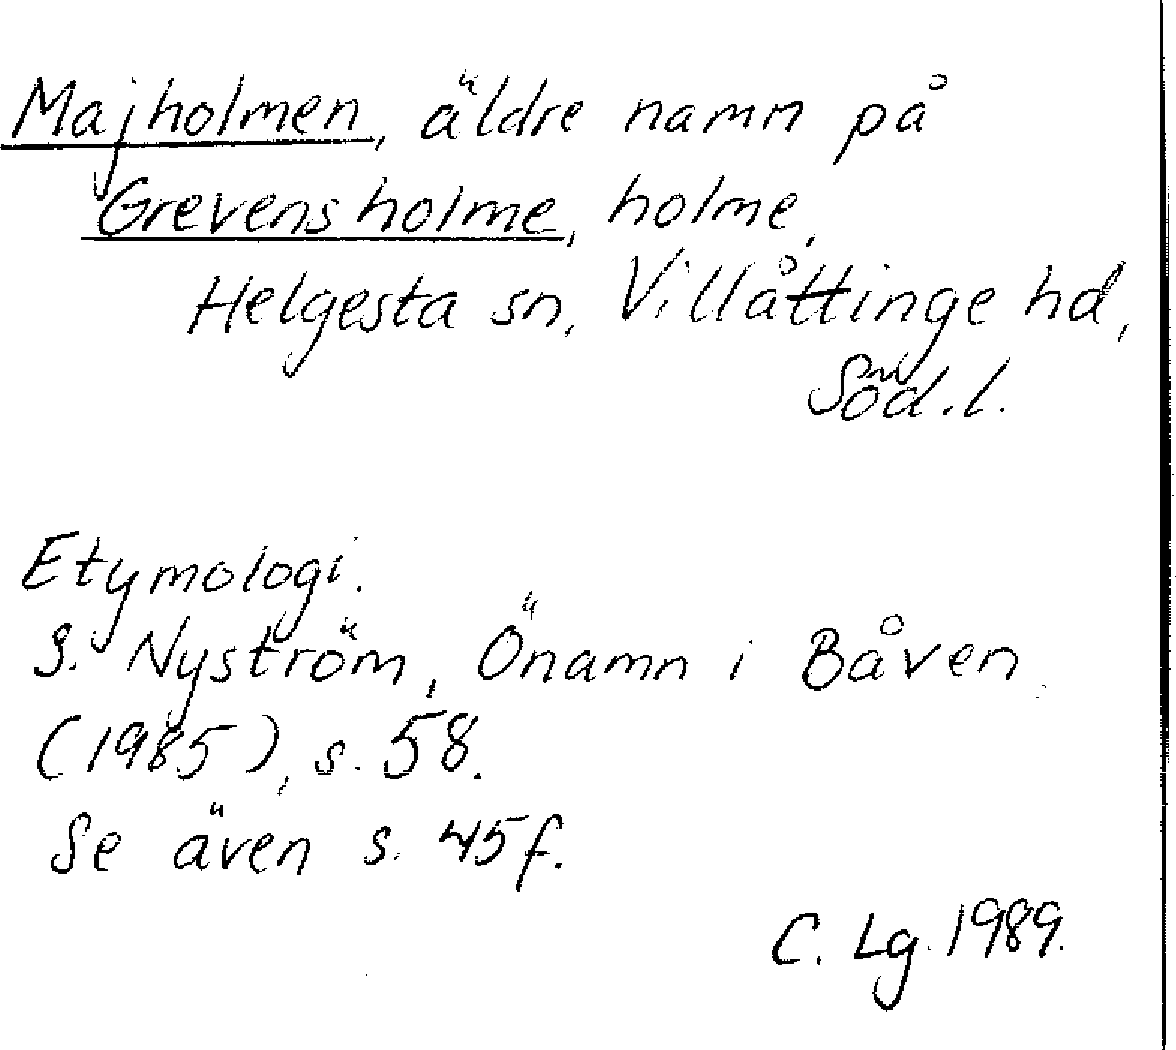 Majholmen, äldre namn på
Grevensholme, holme,
Helgesta sn, Villåttinge hd,
Söd.l.
Etymologi.
S. Nyström, Önamn i Båven
(1985), s. 58.
Se även s. 45f.
C. Lg. 1989.